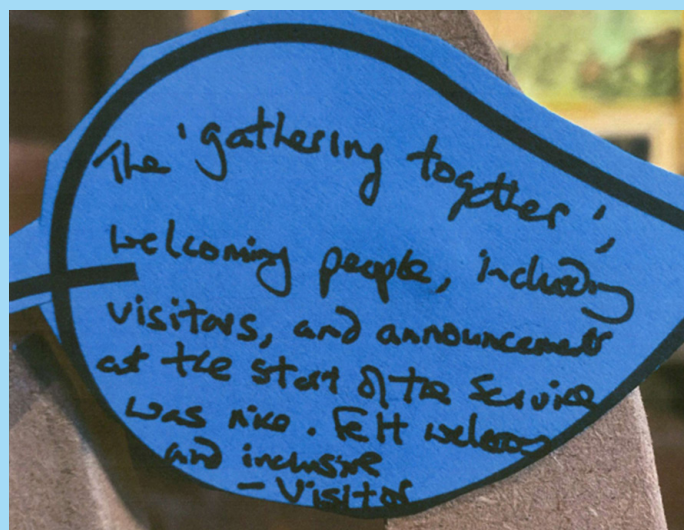 The 'gathering together',
welcoming people, including
visitors, and announcements
at the start of the service
was nice. Felt welcoming
and inclusive
- Visitor